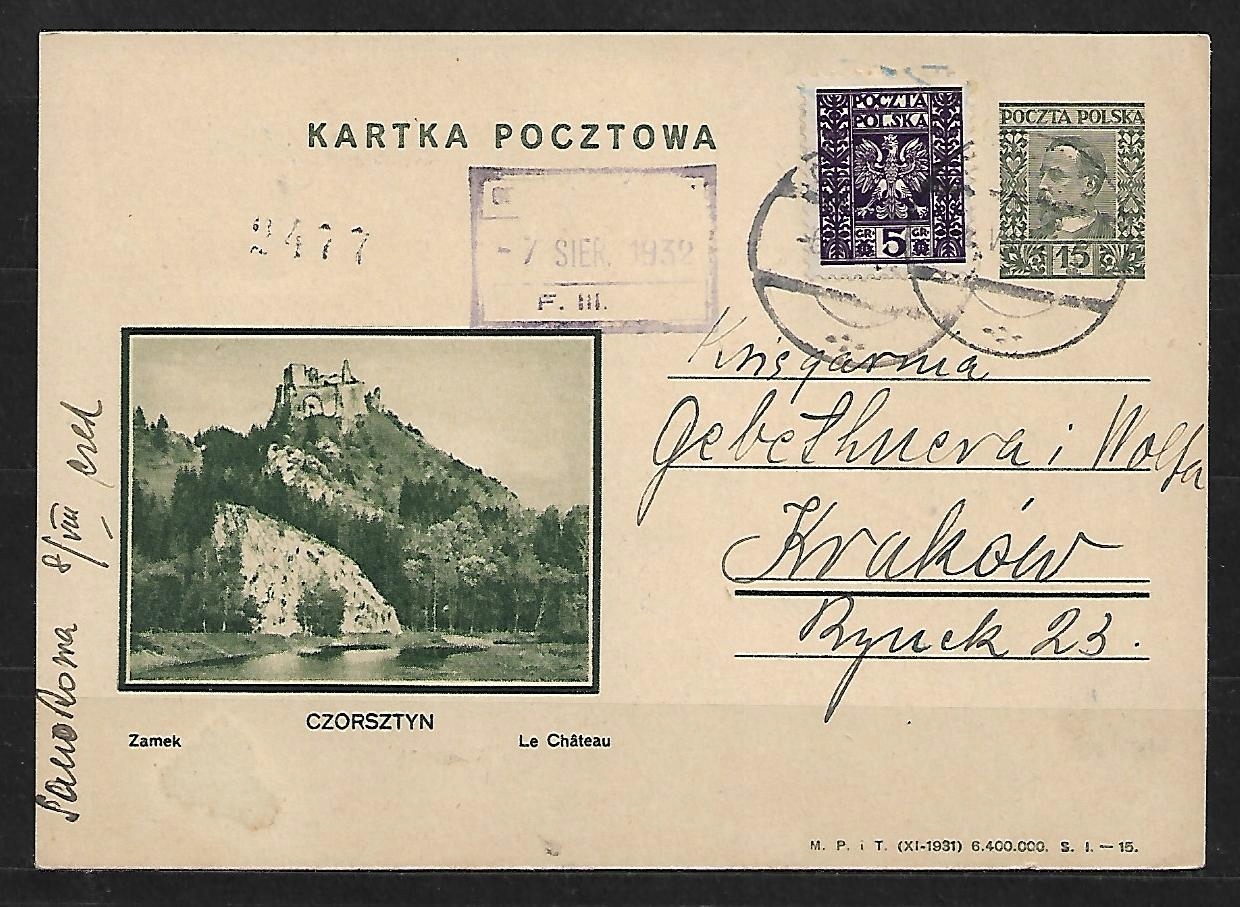 KARTKA POCZTOWA
POCZTA
POLSKA
GR. 5 GR.
POCZTA POLSKA
15
2477
- 7 SIER. 1932
F. III.
Księgarnia
Gebethnera i Wolfa
Kraków
Rynek 23.
8/VIII
CZORSZTYN
Zamek
Le Château
M. P. i T. (XI-1931) 6.400.000. S. I. — 15.